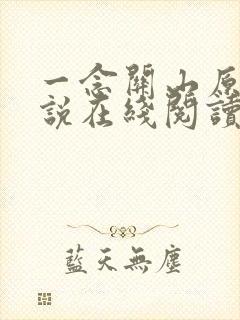 一念關山原
說在綫閱讀
藍天無塵